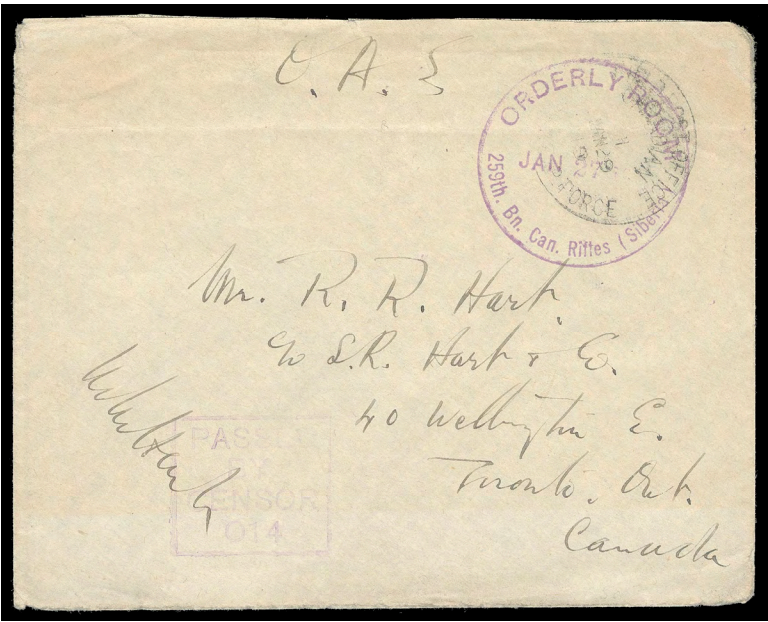 O. A. S
ORDERLY ROOM
JAN 27
259th. Bn. Can. Rifles (Siberia
POST OFFICE
FORCE
Mr. R. R. Hart.
c/o S.R. Hart & Co.
40 Wellington E.
Toronto. Ont.
Canada
PASSED
BY
CENSOR
014